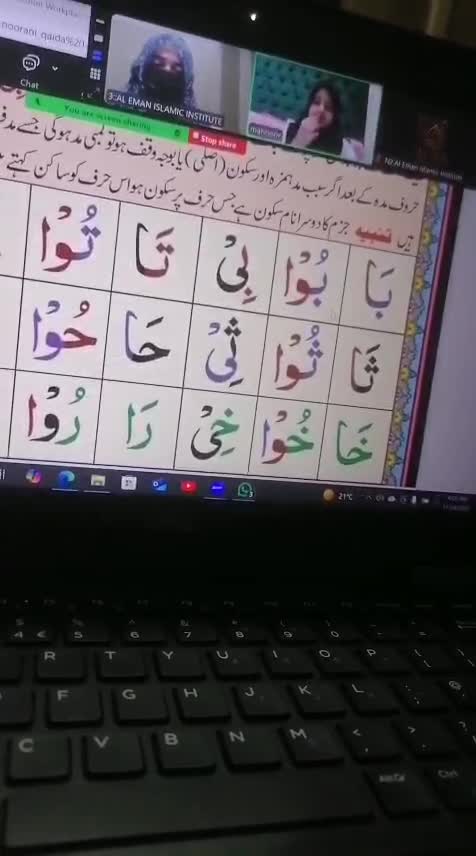 noorani_qaida%20
Chat
3-AL EMAN ISLAMIC INSTITUTE
mahnoor
N2 Al Eman Islamic Institute
You are screen sharing
Stop share
حروف مدہ کے بعد اگر سبب مد ہمزہ اور سکون (اصلی) یا بوجہ وقف ہو تو لمبی مد ہوگی جسے مد
ہیں تنبیہ جزم کا دوسرا نام سکون ہے جس حرف پر سکون ہو اس حرف کو ساکن کہتے
بَا بُوْا بِیْ تَا تُوْا
ثَا ثُوْا ثِیْ حَا حُوْا
خَا خُوْا خِیْ رَا رُوْا
21°C
4 € 5 6 7 8 9 0
R T Y U I O P
F G H J K L
C V B N M
Alt Gr Ctrl